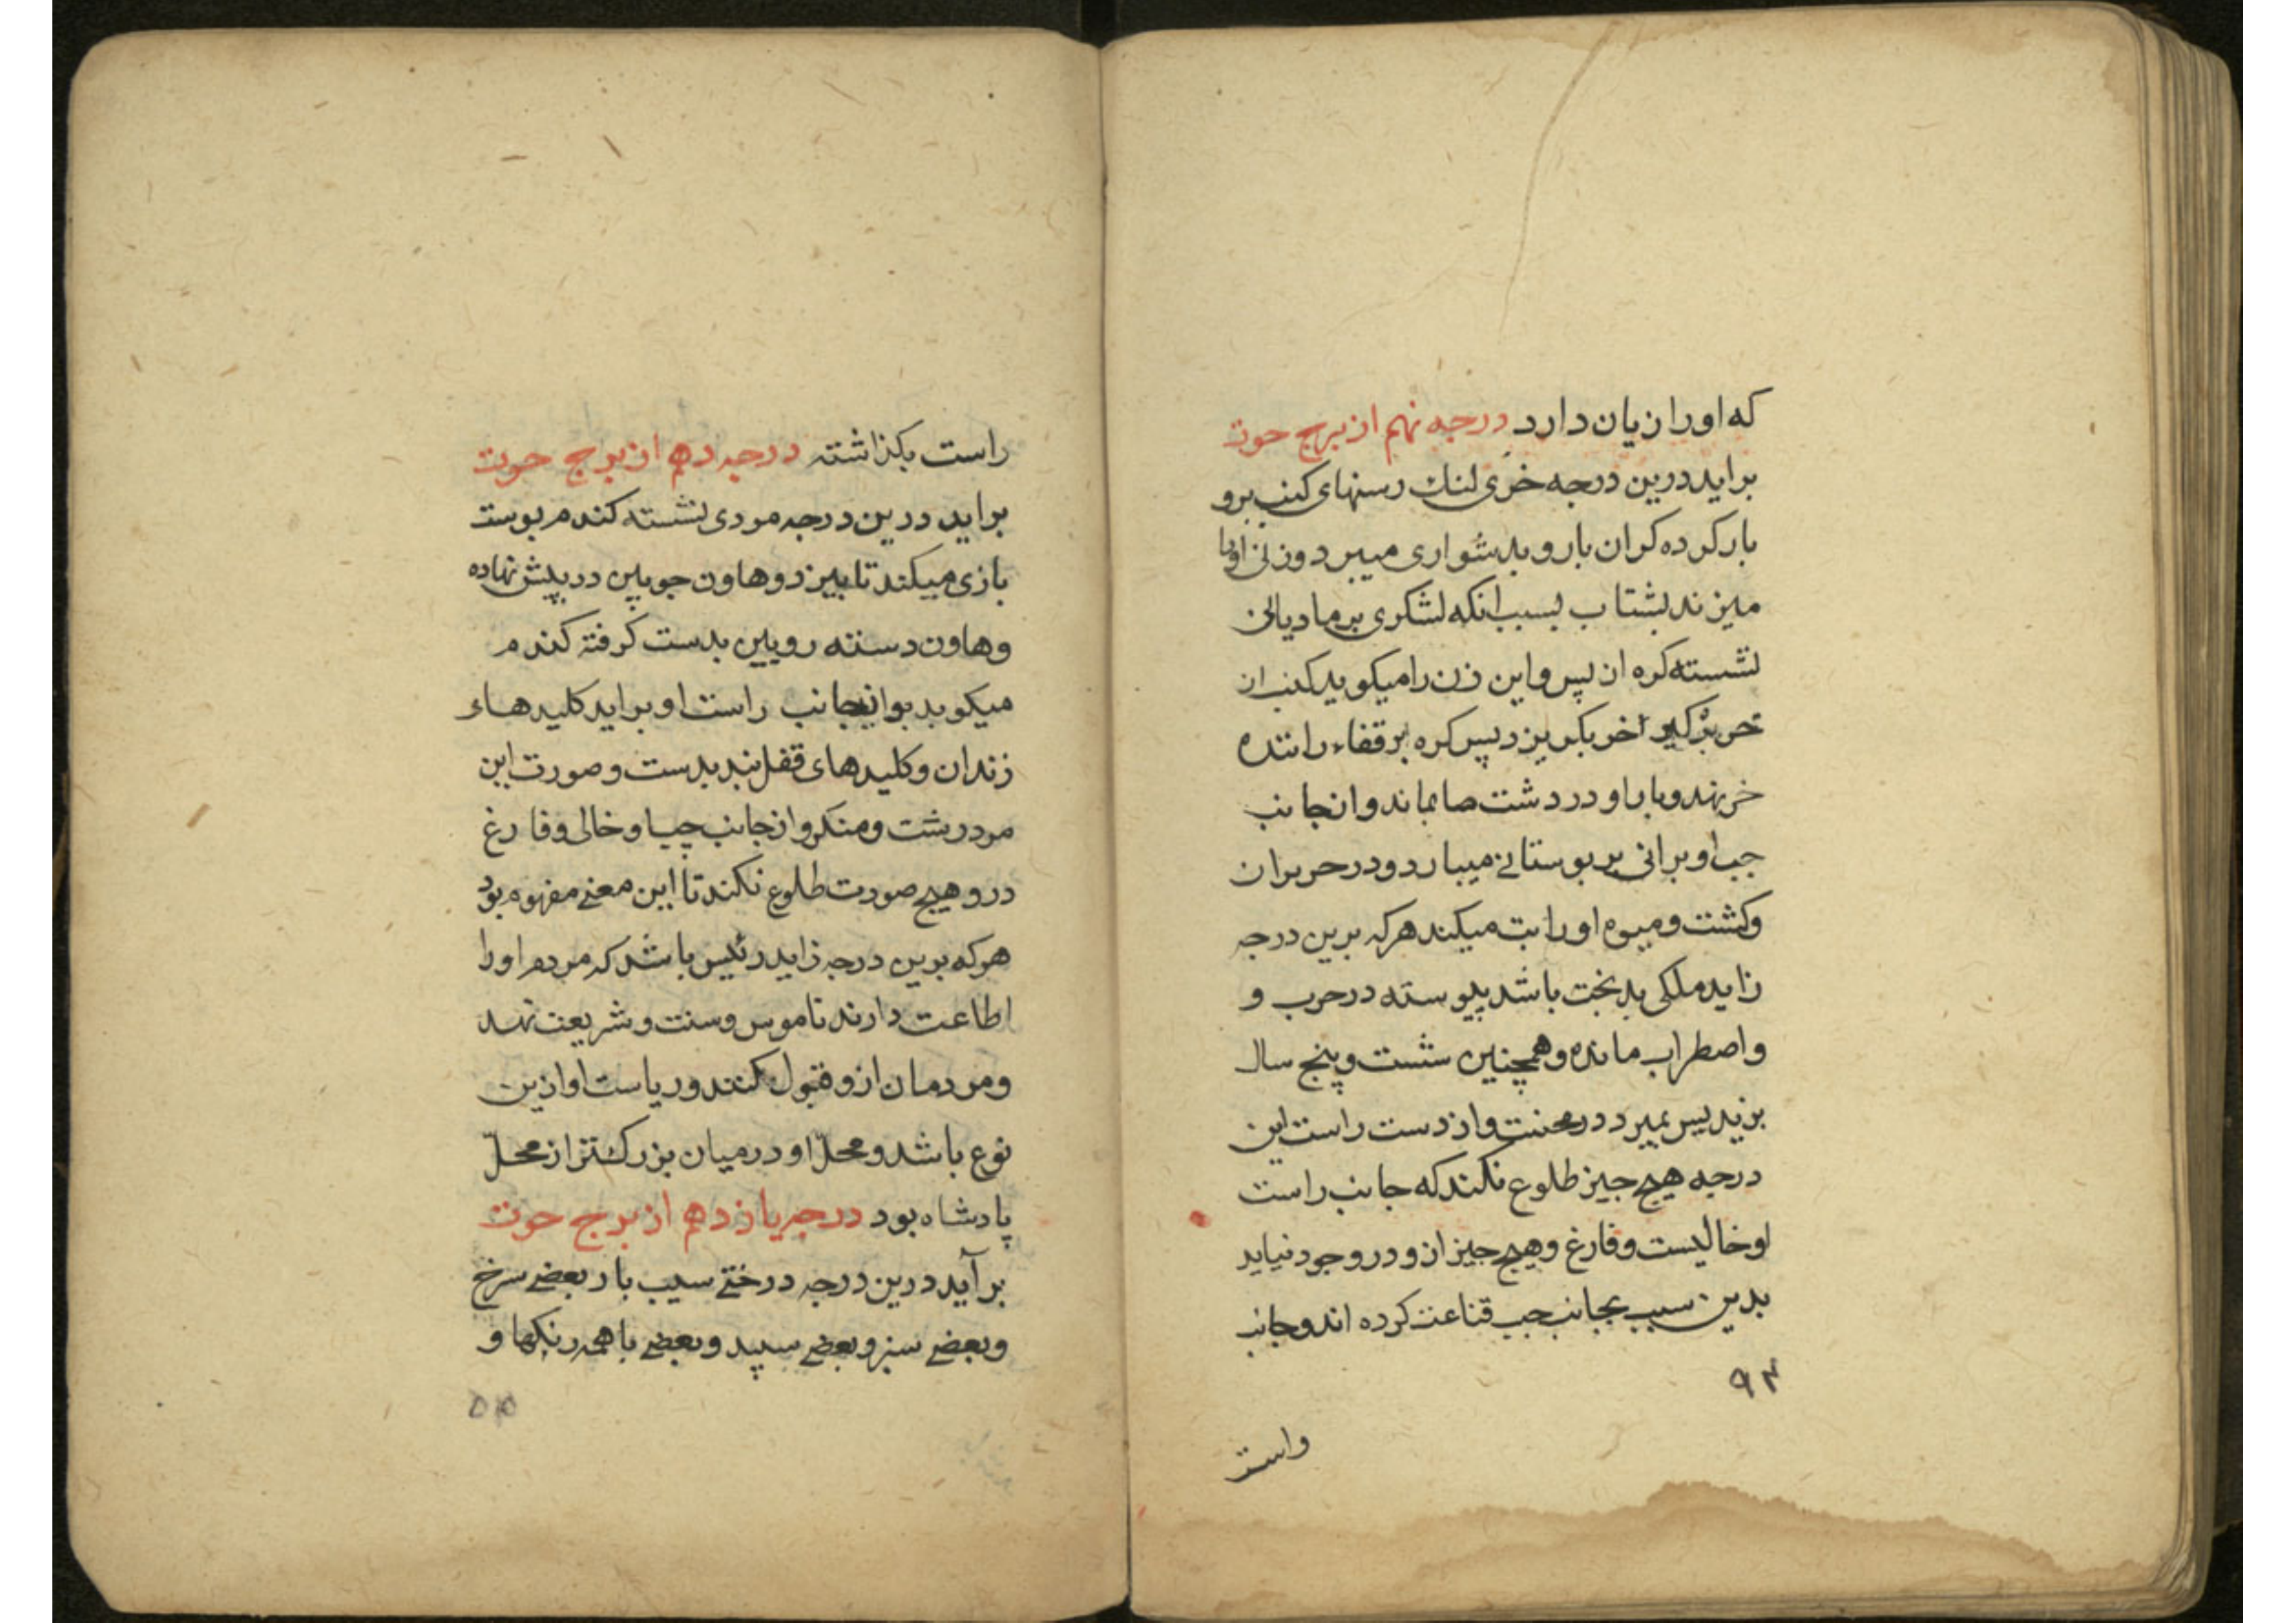 که اورا زیان دارد درجه نهم از برج حوت
براید درین درجه خری لنك رسنهای کنب برو
بار کرده کران بار و بدشواری میبرد و زنی اورا
میزند بشتاب بسبب انکه لشکری بر مادیانی
نشسته کره از پس و این زن را میکوید کنب از
خر بکریزد پس کره بر قفاء راننده
خر نهد و بار او در دشت بماند و از جانب
چب او برانی بر بوستانی میبارد و در حربران
و کشت و میوه او را بت میکند هرکه برین درجه
زاید ملکی بدبخت باشد پیوسته در حرب و
واصطراب مانده و همچنین شست و پنج سال
بزید پس بمیرد در محنت و از دست راست این
درجه هیچ جیز طلوع نکند که جانب راست
او خالیست و فارغ و هیچ جیز ازو در وجود نیاید
بدین سبب بجانب جب قناعت کرده اند و جانب
۹۳
راست
راست بکذاشته درجه دهم از برج حوت
براید درین درجه مردی نشسته کندم بوست
بازی میکند تا ببزد و هاون جوبین در پیش نهاده
و هاون دسته رویین بدست کرفته کندم
میکوبد و از جانب راست او براید کلیدهاء
زندان و کلیدهای قفل بند بدست و صورت این
مرد زشت و منکر و از جانب چپ او خالی و فارغ
درو هیچ صورت طلوع نکند تا این معنی مفهوم بود
هرکه برین درجه زاید رئیس باشد که مردم اورا
اطاعت دارند ناموس و سنت و شریعت نهد
و مردمان ازو قبول کنند و ریاست او ازین
نوع باشد و محلّ او درمیان بزرك تر از محلّ
پادشاه بود درجه یازدهم از برج حوت
برآید درین درجه درختی سیب بار بعضی سرخ
و بعضی سبز و بعضی سپید و بعضی با همه رنکها و